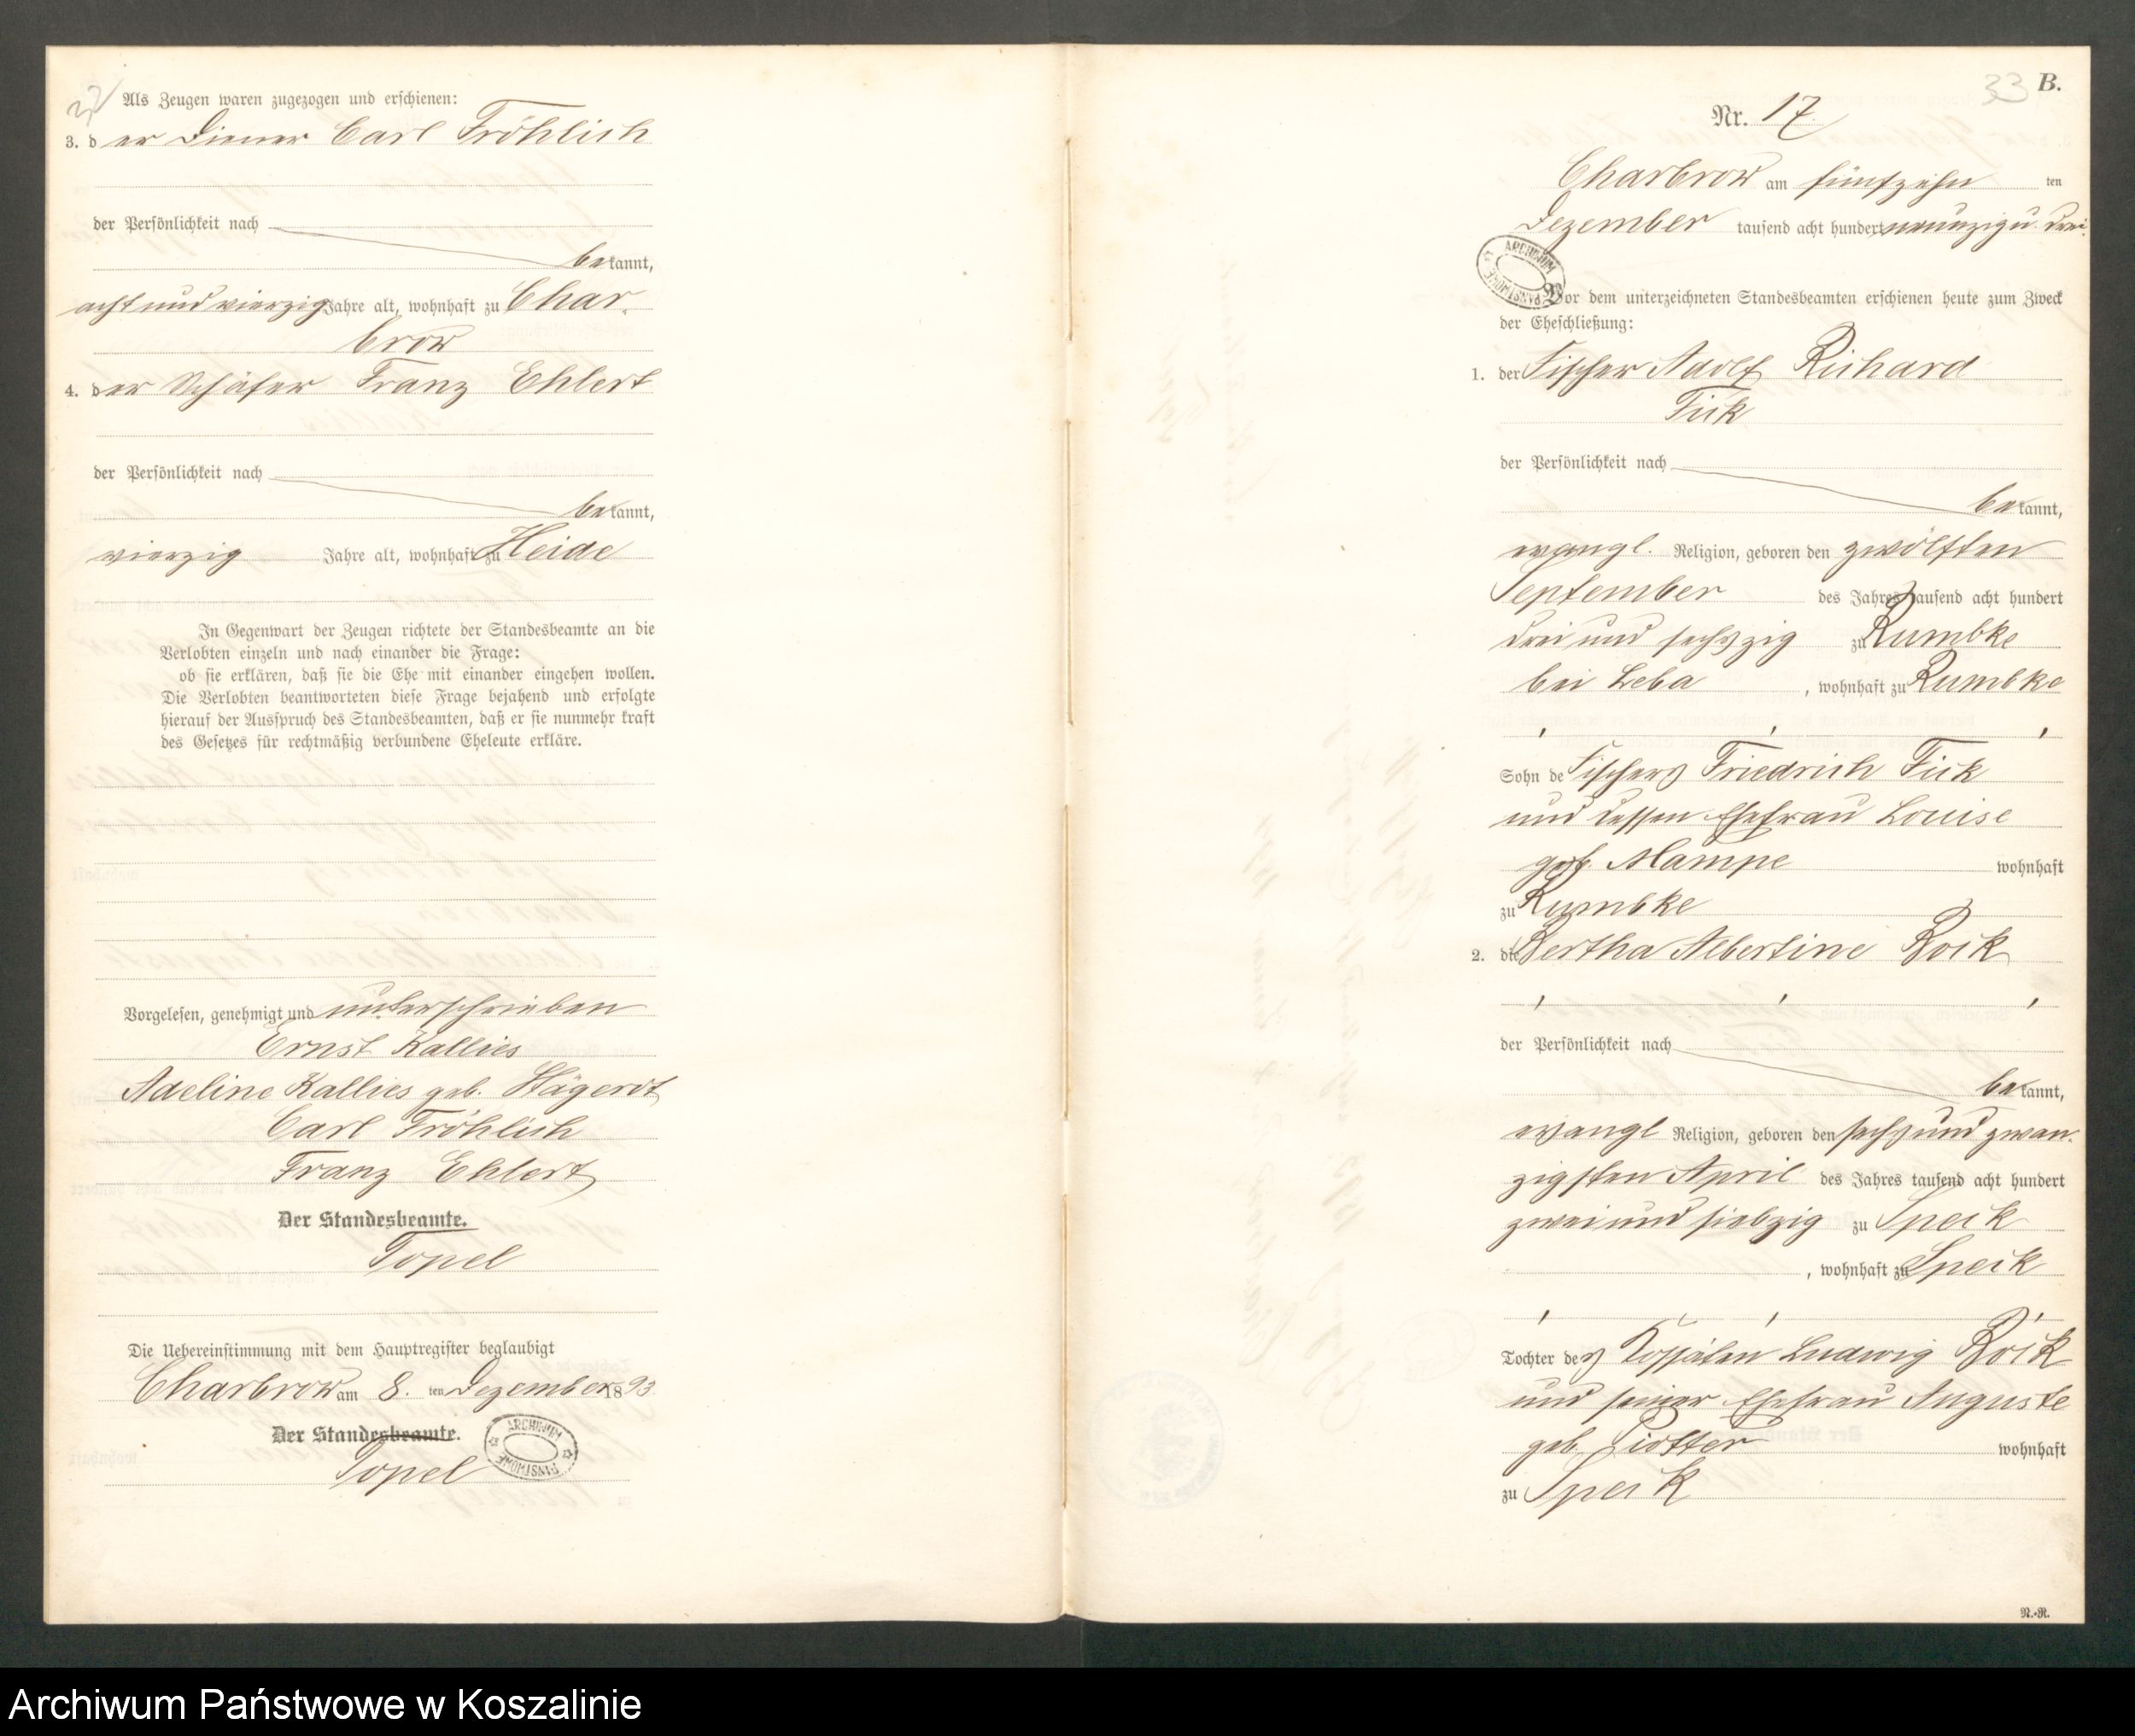 Als Zeugen waren zugezogen und erschienen:
3. d er Diener Carl Fröhlich
der Persönlichkeit nach
bekannt,
acht und vierzig Jahre alt, wohnhaft zu Char-
brow
4. der Schäfer Franz Ehlert
der Persönlichkeit nach
bekannt,
vierzig Jahre alt, wohnhaft zu Heide
In Gegenwart der Zeugen richtete der Standesbeamte an die
Verlobten einzeln und nach einander die Frage:
ob sie erklären, daß sie die Ehe mit einander eingehen wollen.
Die Verlobten beantworteten diese Frage bejahend und erfolgte
hierauf der Ausspruch des Standesbeamten, daß er sie nunmehr kraft
des Gesetzes für rechtmäßig verbundene Eheleute erkläre.
Vorgelesen, genehmigt und unterschrieben
Ernst Kallies
Adeline Kallies geb. Hägerdt
Carl Fröhlich
Franz Ehlert
Der Standesbeamte.
Topel
Die Uebereinstimmung mit dem Hauptregister beglaubigt
Charbrow am 8. ten Dezember 1893
Der Standesbeamte.
Topel
ARCHIWUM PAŃSTWOWE
33 B.
Nr. 17.
Charbrow am fünfzehn ten
Dezember tausend acht hundert neunzig u. drei.
ARCHIWUM PAŃSTWOWE
Vor dem unterzeichneten Standesbeamten erschienen heute zum Zweck
der Eheschließung:
1. der Fischer Adolf Richard
Fick
der Persönlichkeit nach
bekannt,
evangl. Religion, geboren den zwölften
September des Jahres tausend acht hundert
drei und sechszig zu Rumbke
bei Leba, wohnhaft zu Rumbke
Sohn des Fischers Friedrich Fick
und dessen Ehefrau Louise
geb. Mampe wohnhaft
zu Rumbke
2. die Bertha Albertine Koik
der Persönlichkeit nach
bekannt,
evangl Religion, geboren den sechs und zwan-
zigsten April des Jahres tausend acht hundert
zwei und siebzig zu Speck
, wohnhaft zu Speck
Tochter des Kossäten Ludwig Koik
und seiner Ehefrau Auguste
geb. Piotter wohnhaft
zu Speck
N.-R.
Archiwum Państwowe w Koszalinie